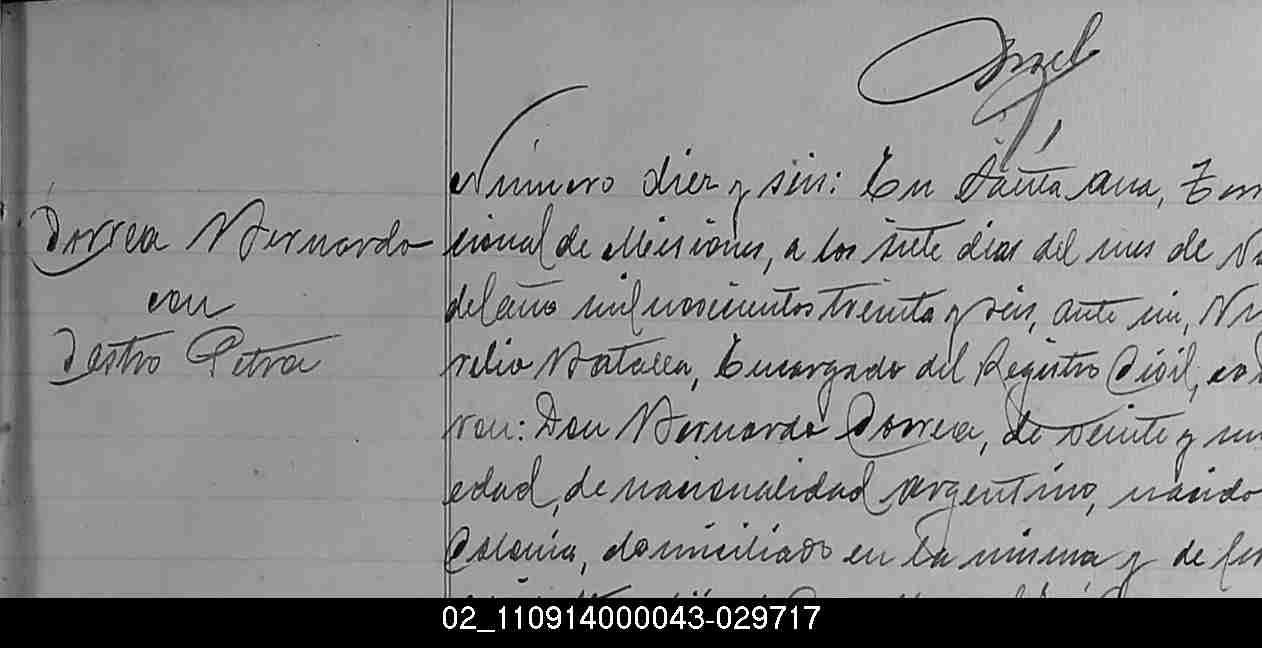 Correa Bernardo
con
Castro Petra
Número diez y seis: En Santa Ana, Terr
cional de Misiones, a los siete dias del mes de No
del año mil novecientos treinta y seis, ante mi,
relio Batalla, Encargado del Registro Civil,
ron: Don Bernardo Correa, de veinte y
edad, de nacionalidad argentino, nacido
Colonia, domiciliado en la misma y de
02_110914000043-029717